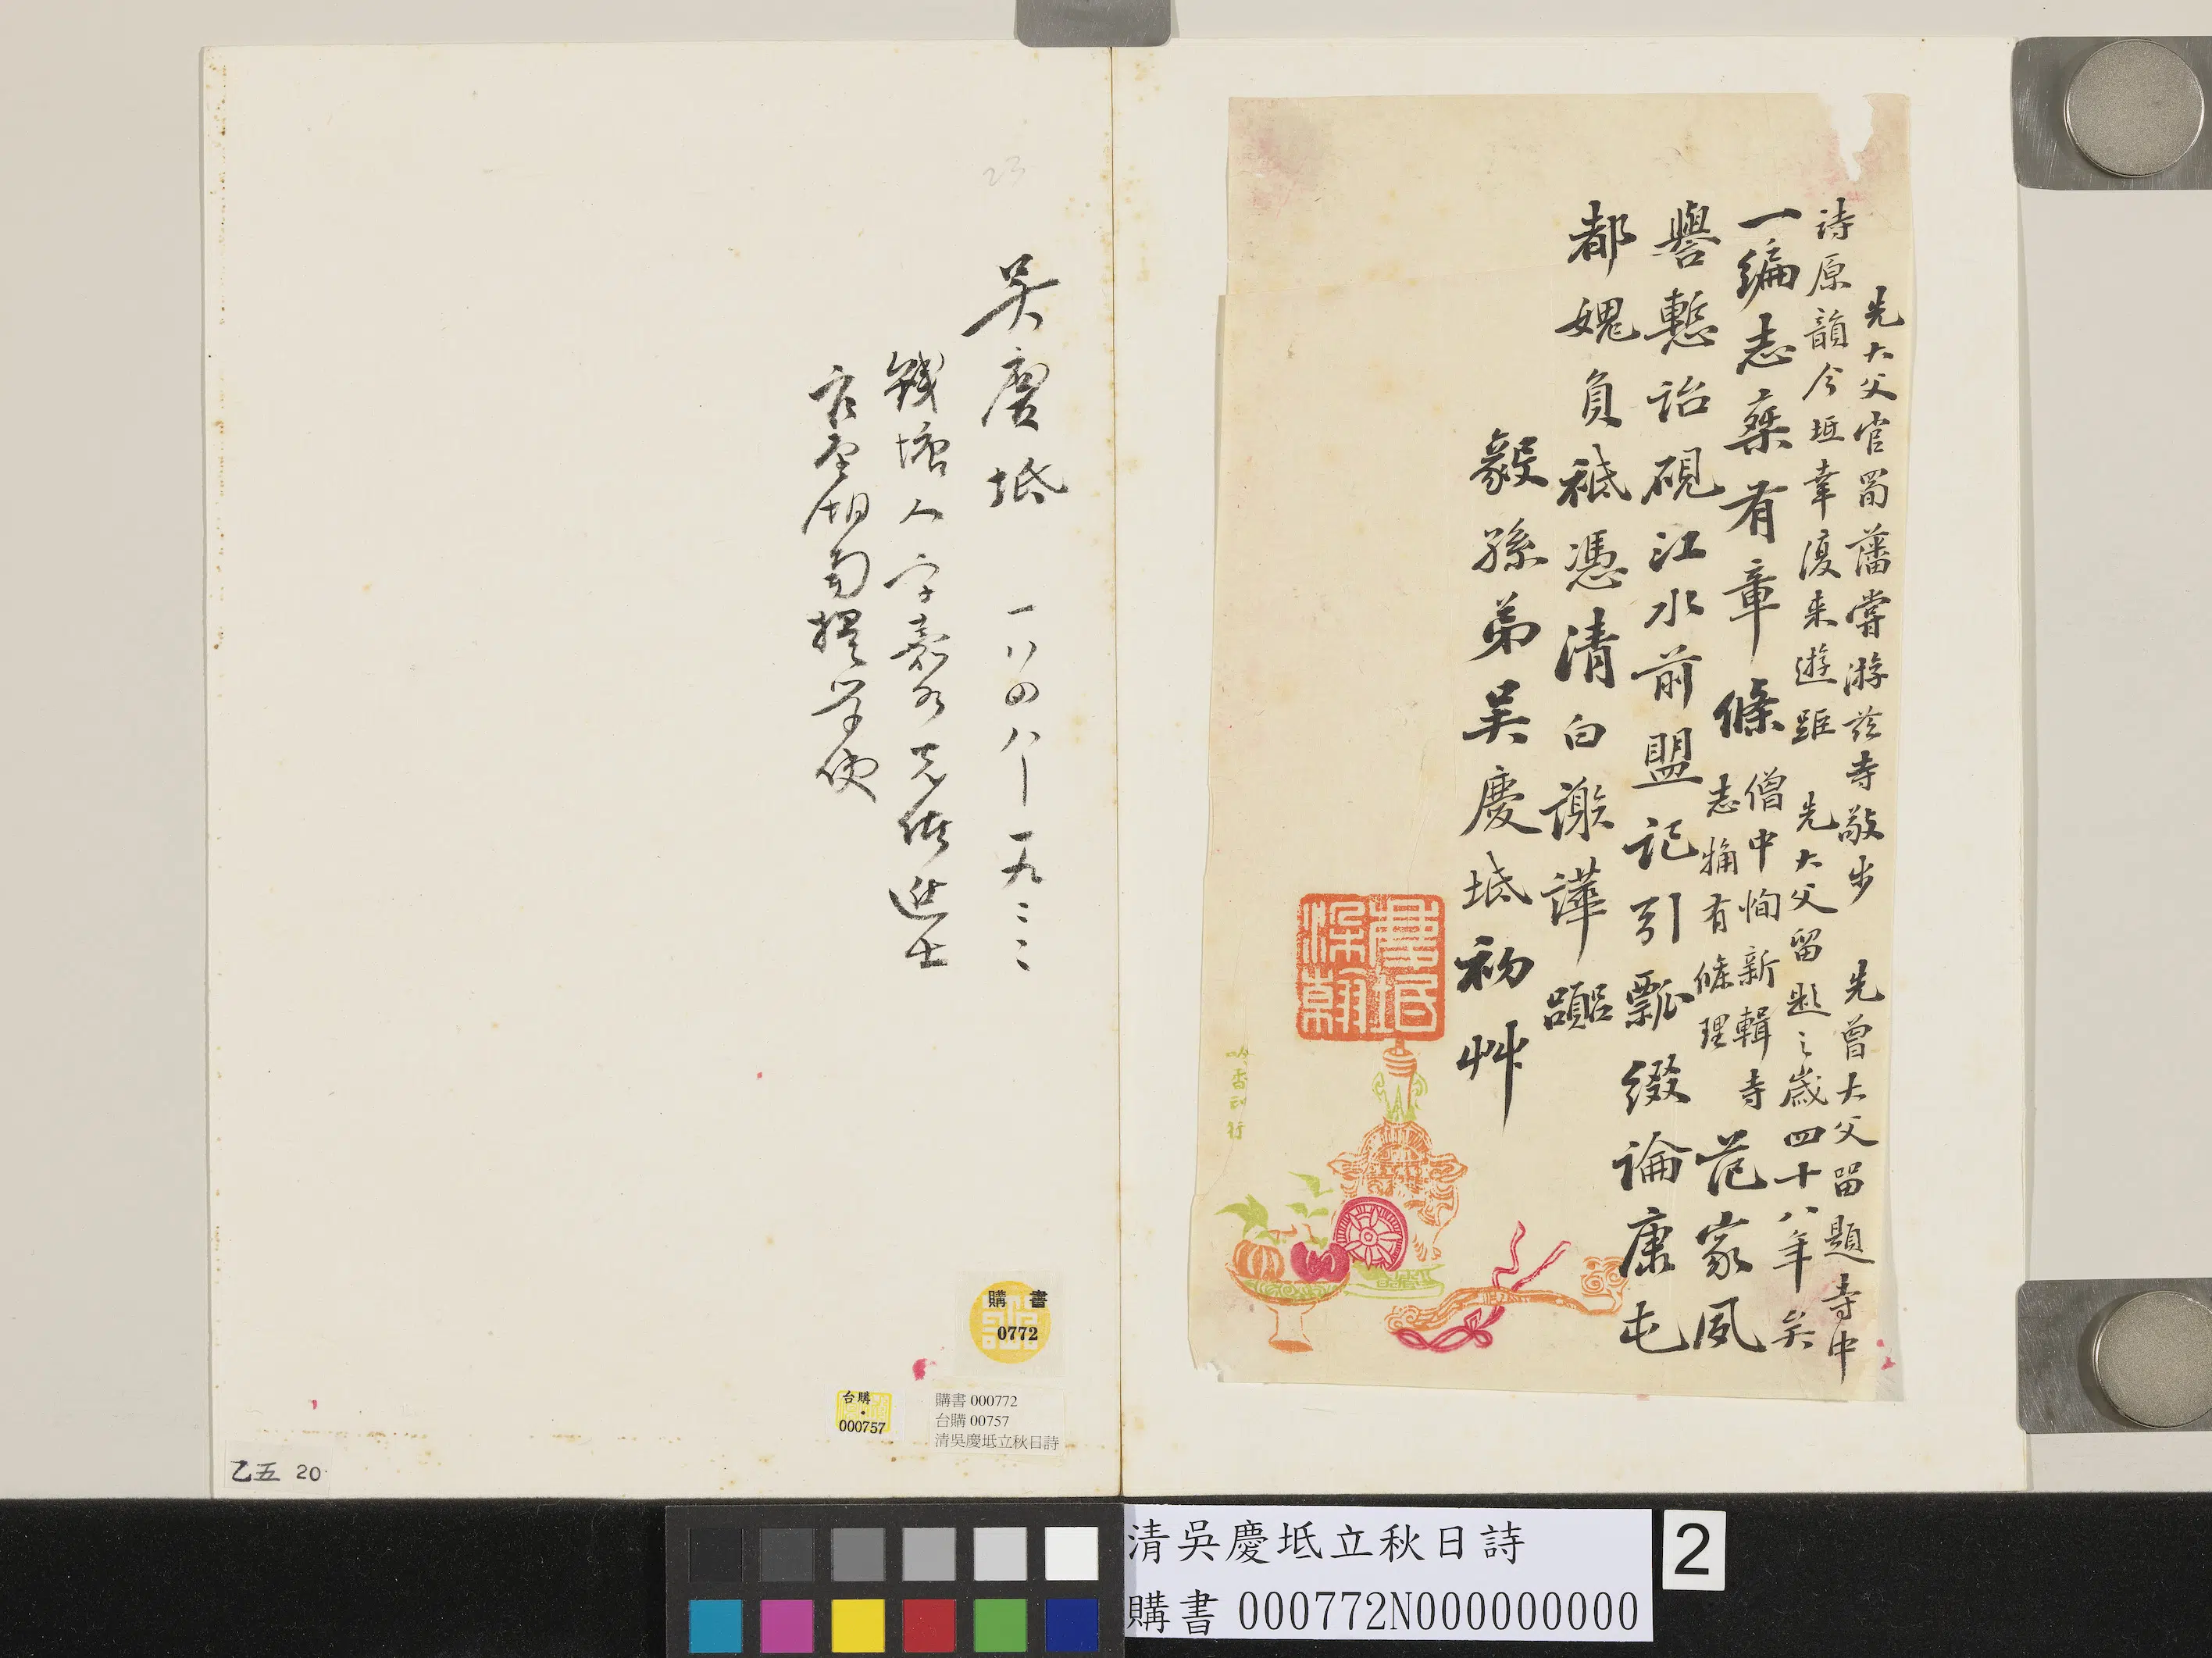 先大父官蜀藩嘗游茲寺敬步　先曾大父留題寺中
詩原韻今坻幸復来遊距　先大父留題之歲四十八年矣
一編志乘有章條
僧中恂新輯寺
志犕有條理
范家風
譽慙詒硯江水前盟記引瓢綴論康屯
都媿負袛憑清白謝譁囂
毅孫弟吳慶坻初艸
吟香刊行
23
吳慶坻　一八四八－一九二二
錢塘人字嘉
進士
官至湖南提學使
購書
0772
台購
000757
購書 000772
台購 00757
清吳慶坻立秋日詩
乙五 20
清吳慶坻立秋日詩
購書 000772N000000000
2